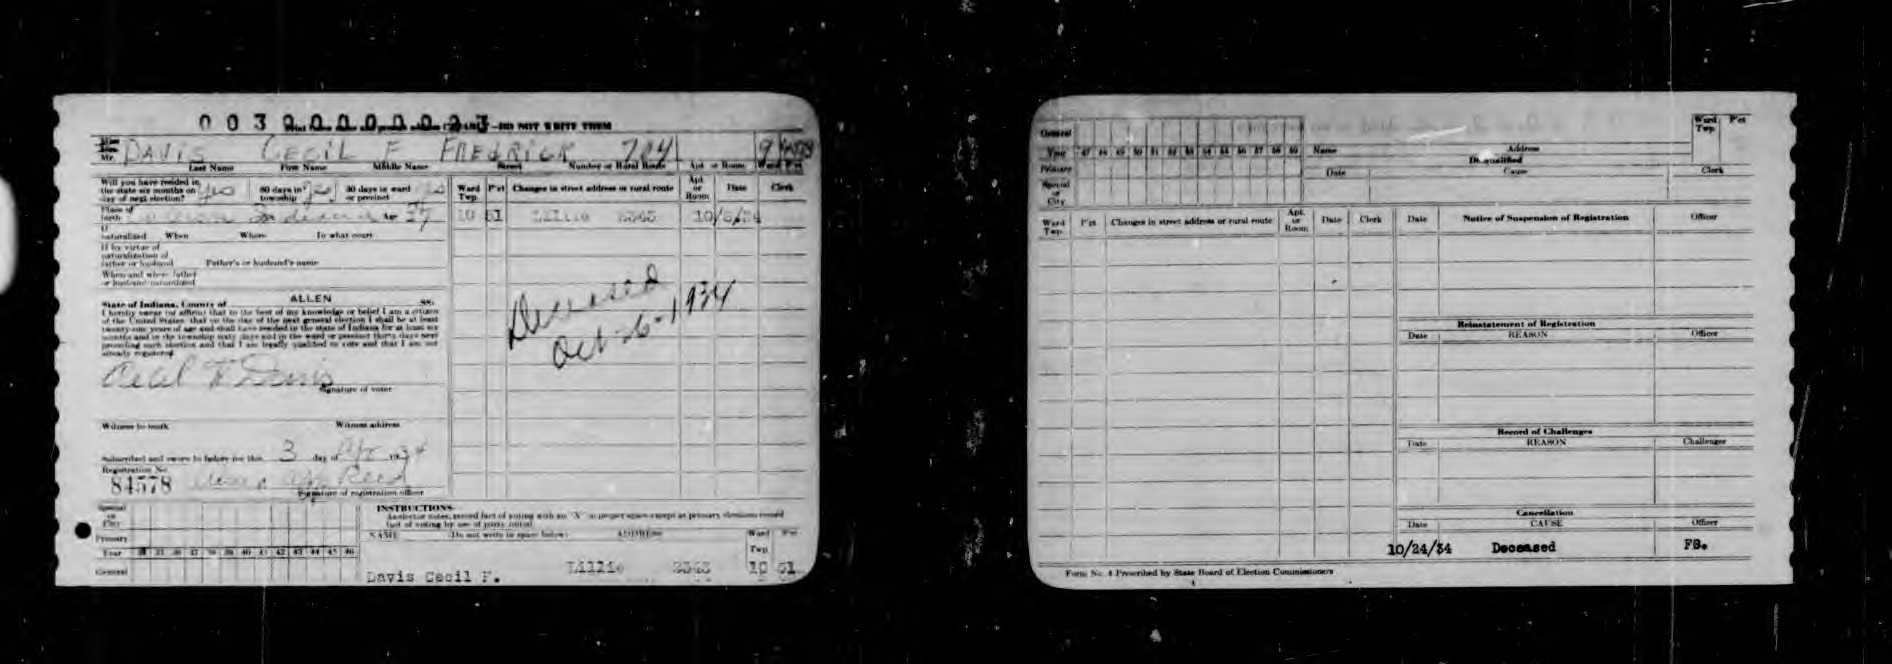 0 0 3 0 0 0 0 0 0 2 3 DO NOT WRITE THEM
Mr. DAVIS CECIL F FREDRICK 704 9
Last Name First Name Middle Name Street Number or Rural Route Apt. or Room Ward P'ct
Will you have resided in the state six months on day of next election? Yes 60 days in township Yes 30 days in ward or precinct Yes
Ward Twp. P'ct Changes in street address or rural route Apt. or Room Date Clerk
Place of birth Indiana 27
10 51 Lillie 2343 10/5/34
If naturalized When Where In what court
If by virtue of naturalization of father or husband Father's or husband's name
When and where father or husband naturalized
State of Indiana, County of ALLEN SS:
I hereby swear (or affirm) that to the best of my knowledge or belief I am a citizen
of the United States, that on the day of the next general election I shall be at least
twenty-one years of age and shall have resided in the state of Indiana for at least six
months and in the township sixty days and in the ward or precinct thirty days next
preceding such election and that I am legally qualified to vote and that I am not
already registered.
Deceased
Oct-26-1934
Cecil F Davis
Signature of voter
Witness to mark Witness address
Subscribed and sworn to before me this 3 day of Apr 1934
Registration No.
84578
Signature of registration officer
Special or City
Primary
Year 35 36 37 38 39 40 41 42 43 44 45 46
General
INSTRUCTIONS
fact of voting by use of party initial
NAME (Do not write in space below) ADDRESS Ward Twp. P'ct
Davis Cecil F. Lillie 2343 10 51
General
Year '47 48 49 50 51 52 53 54 55 56 57 58 59
Primary
Special or City
Name Address Ward Twp. P'ct
Disqualified
Date Cause Clerk
Ward Twp. P'ct Changes in street address or rural route Apt. or Room Date Clerk
Date Notice of Suspension of Registration Officer
Reinstatement of Registration
Date REASON Officer
Record of Challenges
Date REASON Challenger
Cancellation
Date CAUSE Officer
10/24/34 Deceased FS.
Form No. 4 Prescribed by State Board of Election Commissioners